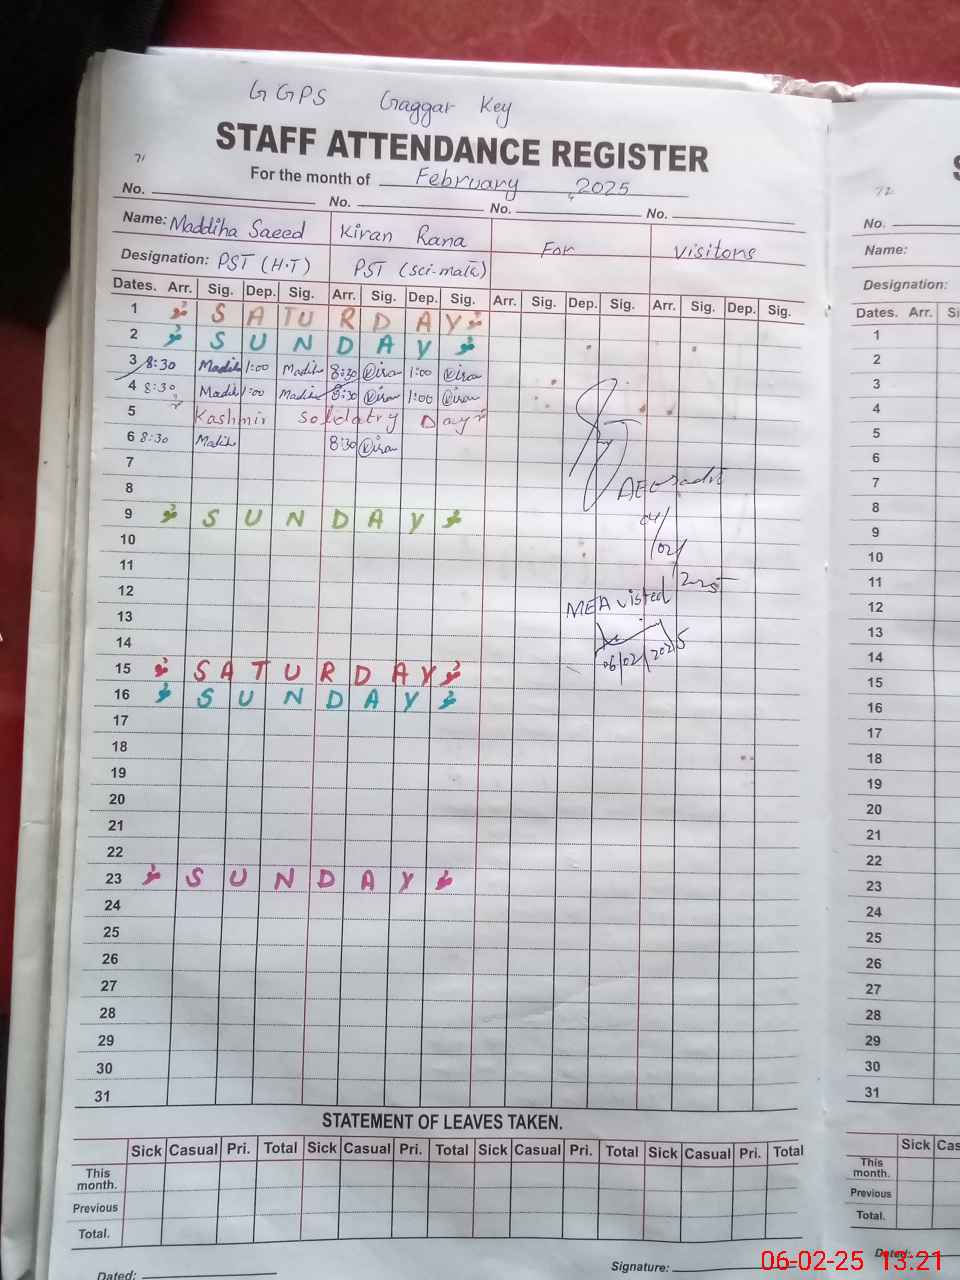 GGPS Gaggar Key
STAFF ATTENDANCE REGISTER
71
For the month of February, 2025
No. No. No. No.
Name: Maddiha Saeed Kiran Rana For Visitors
Designation: PST (H.T) PST (sci-math)
Dates. Arr. Sig. Dep. Sig. Arr. Sig. Dep. Sig. Arr. Sig. Dep. Sig. Arr. Sig. Dep. Sig.
1 SATURDAY
2 SUNDAY
3 8:30 Madih 1:00 Madih 8:30 Kiran 1:00 Kiran
4 8:30 Madih 1:00 Madih 8:30 Kiran 1:00 Kiran
5 Kashmir Solidatry Day
6 8:30 Madih 8:30 Kiran
7
8
AEO
04/02/2025
9 SUNDAY
10
11
12
MEA visted
13
14
06/02/2025
15 SATURDAY
16 SUNDAY
17
18
19
20
21
22
23 SUNDAY
24
25
26
27
28
29
30
31
STATEMENT OF LEAVES TAKEN.
Sick Casual Pri. Total Sick Casual Pri. Total Sick Casual Pri. Total Sick Casual Pri. Total
This month.
Previous
Total.
Dated: Signature:
S
72
No.
Name:
Designation:
Dates. Arr. Si
1
2
3
4
5
6
7
8
9
10
11
12
13
14
15
16
17
18
19
20
21
22
23
24
25
26
27
28
29
30
31
Sick Cas
This month.
Previous
Total.
Dated:
06-02-25 13.21